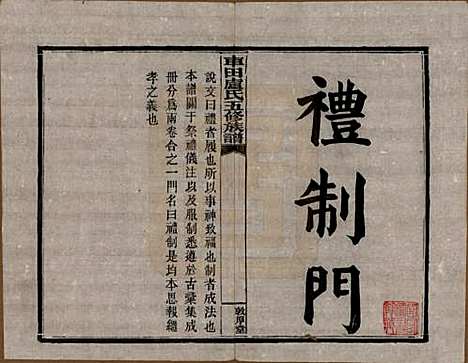 禮制門
車田盧氏五修族譜
敦厚堂
說文曰禮者履也所以事神致福也制者成法也
本譜關于祭禮儀注以及服制悉遵於古彙集成
冊分爲兩卷合之一門名曰禮制是均本思報繼
孝之義也